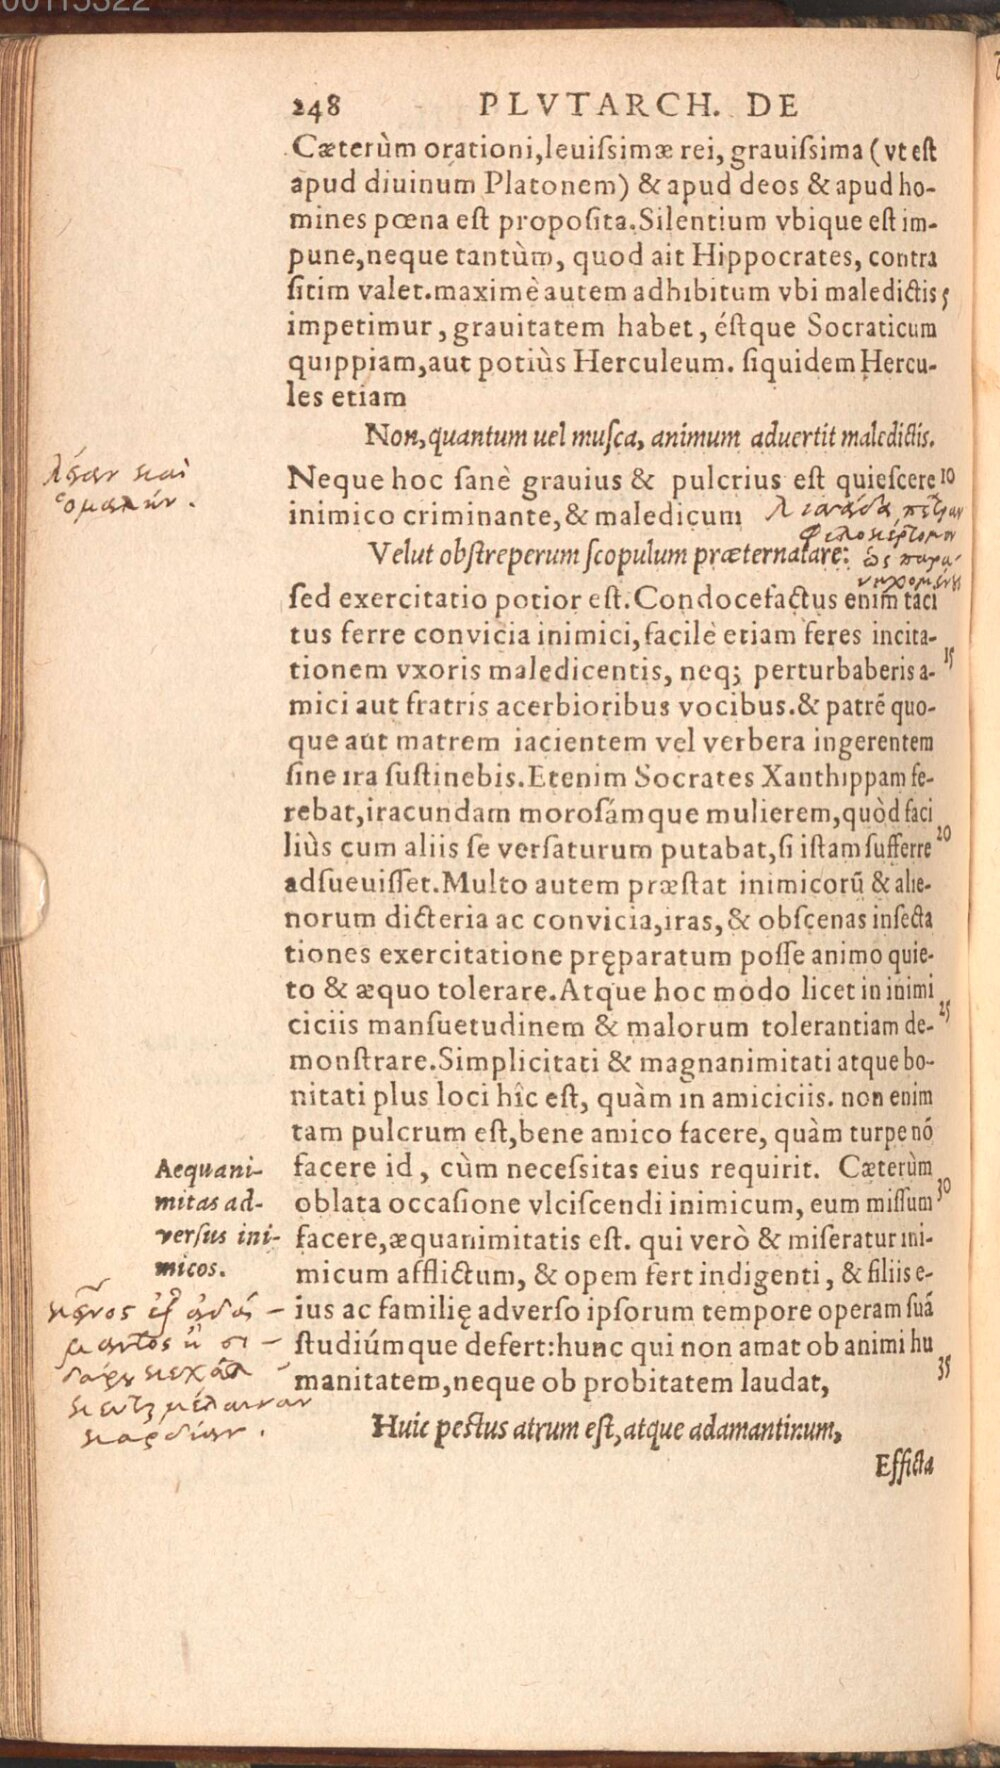 00115322
248 PLVTARCH. DE
Cæterùm orationi,leuiſsimæ rei, grauiſsima (vt eſt
apud diuinum Platonem) & apud deos & apud ho-
mines pœna eſt propoſita.Silentium vbique eſt im-
pune,neque tantùm, quod ait Hippocrates, contra
ſitim valet.maximè autem adhibitum vbi maledictis 5
impetimur, grauitatem habet, éſtque Socraticum
quippiam,aut potiùs Herculeum. ſiquidem Hercu-
les etiam
Non, quantum uel muſca, animum aduertit maledictis.
λ καὶ
ὁμαλὴν.
Neque hoc ſanè grauius & pulcrius eſt quieſcere 10
inimico criminante, & maledicum λισσάδα πέτραν
φιλοκέρτομον
Velut obſtreperum ſcopulum præternatare: ὡς παρα-
νηχομένους
ſed exercitatio potior eſt.Condocefactus enim taci
tus ferre convicia inimici, facilè etiam feres incita-
tionem vxoris maledicentis, neq; perturbaberis a- 15
mici aut fratris acerbioribus vocibus.& patrē quo-
que aut matrem iacientem vel verbera ingerentem
ſine ira ſuſtinebis.Etenim Socrates Xanthippam fe-
rebat,iracundam moroſámque mulierem,quòd faci
liùs cum aliis ſe verſaturum putabat,ſi iſtam ſufferre 20
adſueuiſſet.Multo autem præſtat inimicorū & alie-
norum dicteria ac convicia,iras,& obſcenas inſecta
tiones exercitatione pręparatum poſſe animo quie-
to & æquo tolerare.Atque hoc modo licet in inimi
ciciis manſuetudinem & malorum tolerantiam de- 25
monſtrare.Simplicitati & magnanimitati atque bo-
nitati plus loci hîc eſt, quàm in amiciciis. non enim
tam pulcrum eſt,bene amico facere, quàm turpe nō
facere id, cùm neceſsitas eius requirit. Cæterùm
oblata occaſione vlciſcendi inimicum, eum miſſum 30
facere,æquanimitatis eſt. qui verò & miſeratur ini-
micum afflictum, & opem fert indigenti, & filiis e-
ius ac familię adverſo ipſorum tempore operam ſuā
ſtudiúmque defert:hunc qui non amat ob animi hu
manitatem,neque ob probitatem laudat, 35
Aequani-
mitas ad-
verſus ini-
micos.
κεῖνος ἐξ ἀδά-
μαντος ἢ σι-
δάρου κεχάλ-
κευται μέλαιναν
καρδίαν.
Huic pectus atrum eſt,atque adamantinum,
Efficta